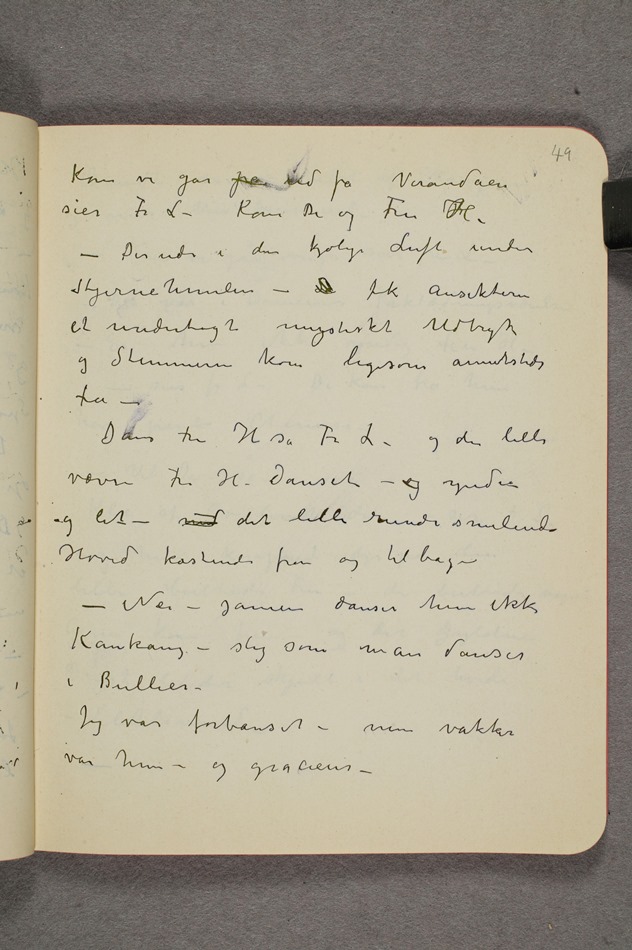 49
Kom vi går ned på Verandaen
sier Fr L – Kom De og Fru H.
– Der ude i den kjølige Luft under
Stjernehimlen – fik ansikterne
et underligt mystiskt Udtryk
og Stemmerne kom ligesom annetsteds
fra –
Dans Fru H sa Fr L – og den lille
vævre Fr H – Dansed – og yndig
og let – det lille runde smilende
Hoved kastende frem og tilbage
– Nei – jamen danser hun ikke
Kankang – slig som man danser
i Bullier –
Jeg var forbauset – men vakker
var hun – og graciøs –